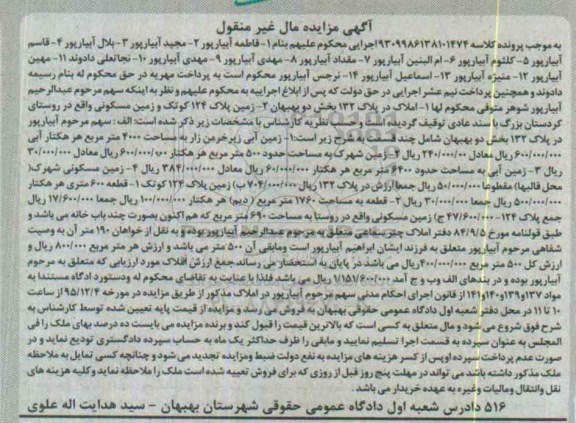 آگهی مزایده مال غیر منقول
به موجب پرونده کلاسه ۹۳۰۹۹۸۶۱۳۸۱۰۱۴۷۴ اجرایی محکوم علیهم بنام ۱- فاطمه آبیارپور ۲- مجید آبیارپور ۳- بلال آبیارپور ۴- قاسم
آبیارپور ۵- کلثوم آبیارپور ۶- ام البنین آبیارپور ۷- مقداد آبیارپور ۸- مهدی آبیارپور ۹- مهدی آبیارپور ۱۰- نجاتعلی دادوند ۱۱- مهین
آبیارپور ۱۲- منیژه آبیارپور ۱۳- اسماعیل آبیارپور ۱۴- نرجس آبیارپور محکوم است به پرداخت مهریه در حق محکوم له بنام رسیمه
دادوند و همچنین پرداخت نیم عشر اجرایی در حق دولت که پس از ابلاغ اجراییه به محکوم علیهم و نظر به اینکه سهم مرحوم عبدالرحیم
آبیارپور شوهر متوفی محکوم لها ۱- املاک در پلاک ۱۳۲ بخش دو بهبهان ۲- زمین پلاک ۱۲۴ کوتک و زمین مسکونی واقع در روستای
کردستان بزرگ با سند عادی توقیف گردیده است نظریه کارشناس با مشخصات زیر ذکر شده است: الف: سهم مرحوم آبیارپور
در پلاک ۱۳۲ بخش دو بهبهان شامل چند قسمت به شرح زیر است: ۱- زمین آبی زیرخرمن زار به مساحت ۴۰۰۰ متر مربع هر هکتار آبی
۶۰۰/۰۰۰/۰۰۰ ریال معادل ۲۴۰/۰۰۰/۰۰۰ ریال ۲- زمین شهرک به مساحت حدود ۵۰۰ متر مربع هر هکتار ۶۰۰/۰۰۰/۰۰۰ ریال معادل ۳۰/۰۰۰/۰۰۰
ریال ۳- زمین آبی به مساحت حدود ۶۴۰۰ متر مربع هر هکتار ۶۰۰/۰۰۰/۰۰۰ ریال معادل ۳۸۴/۰۰۰/۰۰۰ ریال ۴- زمین مسکونی شهرک(
محل قالبها) مقطوعا ۵۰/۰۰۰/۰۰۰ ریال جمعا ارزش در پلاک ۱۳۲ ریال ۷۰۴/۰۰۰/۰۰۰ ریال ب) زمین پلاک ۱۲۴ کوتک ۱- قطعه ۶۰۰ متری هر هکتار
۵۰۰/۰۰۰/۰۰۰ ریال جمعا ۳۰/۰۰۰/۰۰۰ ریال ۲- قطعه به مساحت ۱۷۶۰ متر مربع (دیم) هر هکتار ۱۰۰/۰۰۰/۰۰۰ ریال جمعا ۱۷/۶۰۰/۰۰۰ ریال
جمع پلاک ۱۲۴- ۴۷/۶۰۰/۰۰۰ ج) زمین مسکونی واقع در روستا به مساحت ۶۹۰ متر مربع که هم اکنون بصورت چند باب خانه می باشد و
طبق قولنامه مورخ ۸۴/۹/۵ دفتر املاک چم سماعی متعلق به مرحوم عبدالرحیم آبیارپور بوده و به نقل از خواهان ۱۹۰ متر آن به وصیت
شفاهی مرحوم آبیارپور متعلق به فرزند ایشان ابراهیم آبیارپور است ومابقی آن ۵۰۰ متر می باشد و ارزش هر متر مربع ۸۰۰/۰۰۰ ریال و
ارزش کل ۵۰۰ متر مربع ۴۰۰/۰۰۰/۰۰۰ ریال می باشد در پایان به استحضار می رساند جمع ارزش املاک مورد ارزیابی که متعلق به مرحوم
آبیارپور بوده و در بندهای الف وب و ج آمد ۱/۱۵۷/۶۰۰/۰۰۰ ریال می باشد فلذا با عنایت به تقاضای محکوم له و دستورد ادگاه مستندا به
مواد ۱۳۷و۱۳۹و۱۴۰و۱۴۱ از قانون اجرای احکام مدنی سهم مرحوم آبیارپور در املاک مذکور از طریق مزایده در مورخه ۹۵/۱۲/۴ از ساعت
۱۰ تا ۱۱ در محل دفتر شعبه اول دادگاه عمومی حقوقی بهبهان به فروش می رسد و مزایده از قیمت پایه تعیین شده توسط کارشناس به
شرح فوق شروع می شود و مال متعلق به کسی است که بالاترین قیمت را قبول کند و برنده مزایده می بایست ده درصد بهای ملک را فی
المجلس به عنوان سپرده به قسمت اجرا تسلیم نمایید و مابقی را ظرف حداکثر یک ماه به حساب سپرده دادگستری تودیع نماید و در
صورت عدم پرداخت سپرده اوپس از کسر هزینه های مزایده به نفع دولت ضبط ومزایده تجدید می شود و چنانچه کسی تمایل به ملاحظه
ملک مذکور داشته باشد می تواند در مهلت پنج روز قبل از روزی که برای فروش تعیبه شده است ملک را ملاحظه نماید وکلیه هزینه های
نقل وانتقال ومالیات وغیره به عهده خریدار می باشد.
۵۱۶ دادرس شعبه اول دادگاه عمومی حقوقی شهرستان بهبهان - سید هدایت اله علوی